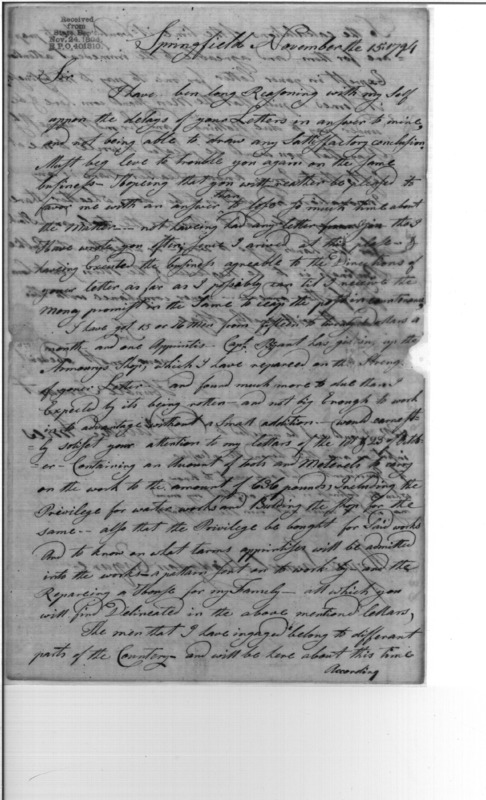 Received
from
State Dept.
Nov. 24, 1894
R.P.O. 401810.
Springfield November the 15th 1794
Sir
I have ben long Reasoning with my Self
appon the delays of your Letters in answer to mine
and not being able to draw any Sattisfactory conclusion
Must beg leve to trouble you again on the Same
business Hopeing that you will reather be pleased to
favor me with an answer than to lose so much time about
the Matter not haveing had any letter from you tho I
have wrote you often since I arived at this place &
haveing Executed the business agreable to the Directions of
your letter as far as I possably can til I receive the
Mony promist in the Same to
I have got 15 or 16 Men from fifteen to dollars a
month and one Apprintis Capt. Bryant has given up the
Armourys Shop, which I have repaired on the Streng
of your Letter and found much more to due than I
Expected by its being rotten and not big Enough to work
in to advantage without a Small addition would
by solisit your attention to my letters of the 17 & 23 of Octob
er Containing an Amount of tools and Meterels to carry
on the work to the amount of 636 pounds, Including the
Privilege for water works and Building the Shop for the
same also that the Privilege be bought for Said works
And to know on what tarms apprintises will be admitted
into the work a pattern sent on to work by and the
Repareing a House for my Family all which you
will find Delineated in the above mentioned letters,
The men that I have ingaged belong to different
parts of the Countery and will be here about this time
According